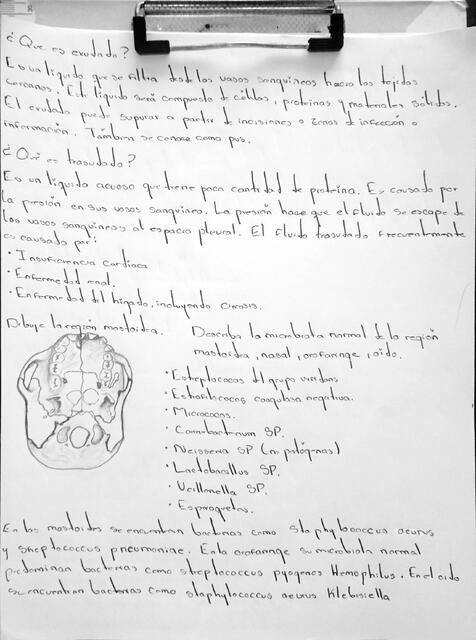 ¿Que es exudado?
Es un líquido que se filtra desde los vasos sanguineos hacia los tejidos
cercanos. Este líquido será compuesto de células, proteinas y materiales solidos.
El exudado puede supurar a partir de incisiones o zonas de infección o
información. Tambien se conose como pus.
¿Qué es trasudado?
Es un líquido acuoso que tiene poca cantidad de proteina. Es causado por
la presión en sus vasos sanguineo. La presión hase que el fluido se escape de
los vasos sanguineos al espacio pleural. El fluido trasudado frecuentemente
es causado por:
· Insuficiencia cardiaca
· Enfermedad renal.
· Enfermedad del higado, incluyendo cirrosis.
Dibuje la región mastoidea.
Describa la microbiota normal de la región
mastoidea, nasal, orofaringe, oido.
· Estreptococos del grupo viridans
· Estafilococos coagulasa negativa.
· Micrococos.
· Corinobacterium SP.
· Neisseria SP (no patógenas)
· Lactobacillus SP.
· Veillonella SP.
· Espiroquetas.
En las mastoides se encuentran bacterias como staphylococcus aeurus
y streptococcus pneumoniae. En la orofaringe su microbiota normal
predominan bacterias como streptococcus pyogenes Hemophilus. En el oido
se encuentran bacterias como staphylococcus aeurus Klebisiella